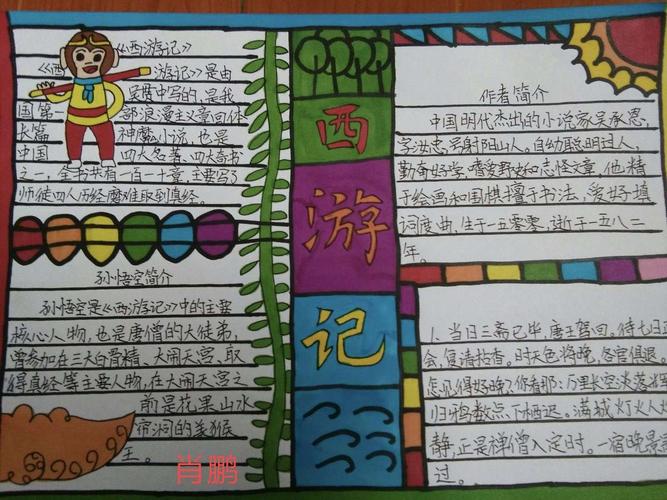 《西游记》
《西游记》是由
吴贯中写的,是我
国第一部浪漫主义章回体
长篇神魔小说,也是
中国四大名著、四大奇书
之一,全书共有一百一十章,主要写了
师徒四人历经磨难取到真经。
孙悟空简介
孙悟空是《西游记》中的主要
核心人物,也是唐僧的大徒弟,
曾参加在三大白骨精、大闹天宫、取
得真经等主要人物,在大闹天宫之
前是花果山水
帘洞的美猴
王。
肖鹏
西
游
记
作者简介
中国明代杰出的小说家吴承恩,
字汝忠,号射阳山人。自幼聪明过人,
勤奋好学,嗜爱野史和志怪文章,他精
于绘画和围棋擅于书法,爱好填
词度曲,生于一五零零,逝于一五八二
年。
1、当日三斋已毕,唐王驾回。待七日正
会,复请拈香。时天色将晚,各官俱退。
怎见得好晚?你看那:万里长空淡落辉,
归鸦数点下栖迟。满城灯火人
静,正是禅僧入定时。一宿晚景
过。